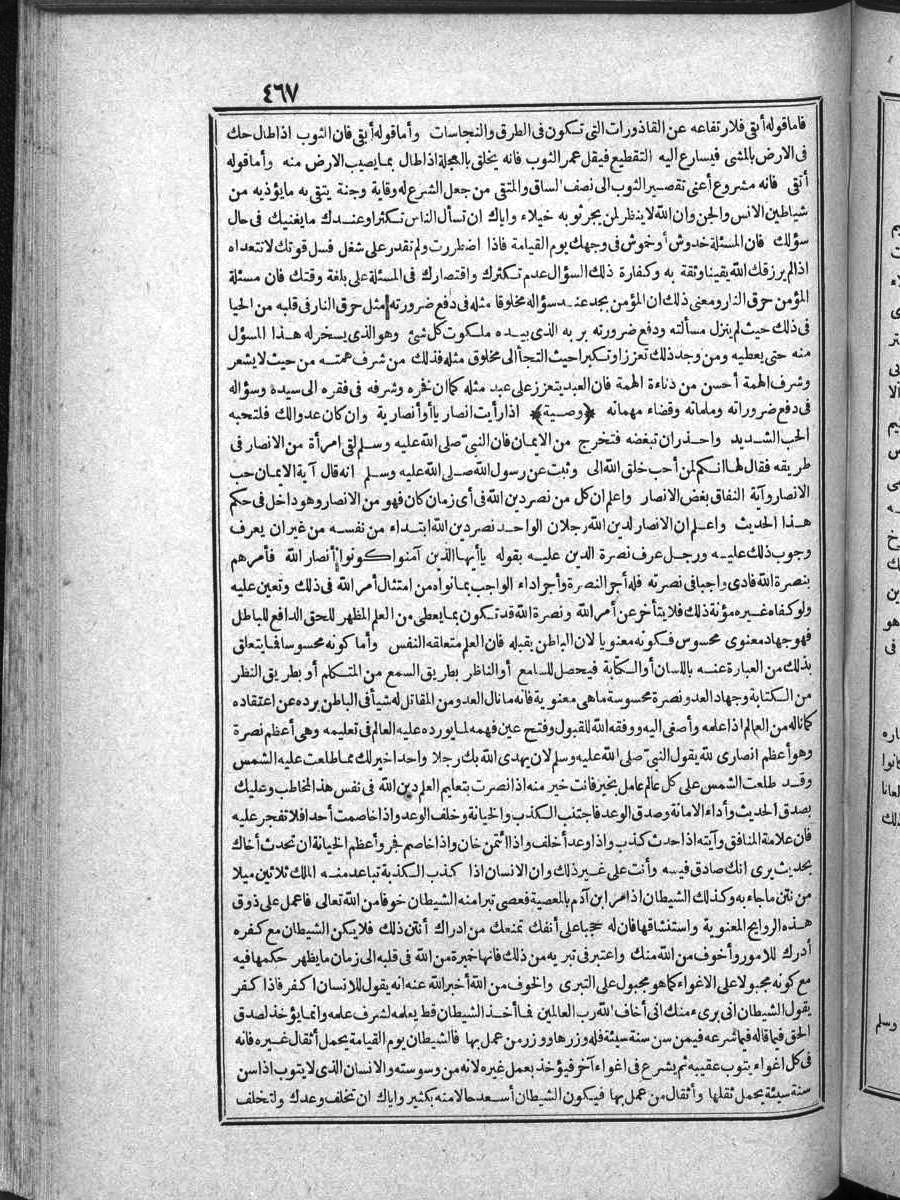 ٤٦٧
فاما قوله أنقى فلارتفاعه عن القاذورات التى تكون فى الطرق والنجاسات وأما قوله أبقى فان الثوب اذا طال حك
فى الارض بالمشى فيسارع اليه التقطيع فيقل عمر الثوب فانه يخلق بالعجلة اذا طال بما يصيب الارض منه وأما قوله
أتقى فانه مشروع أعنى تقصير الثوب الى نصف الساق والمتقى من جعل الشرع له وقاية وجنة يتقى به مايؤذيه من
شياطين الانس والجن وان الله لا ينظر لمن يجر ثوبه خيلاء واياك ان تسأل الناس تكثرا وعندك مايغنيك فى حال
سؤلك فان المسئلة خدوش أو خموش فى وجهك يوم القيامة فاذا اضطررت ولم تقدر على شغل فسل قوتك لا تتعداه
اذا لم يرزقك الله يقينا وثقة به وكفارة ذلك السؤال عدم تكثرك واقتصارك فى المسئلة على بلغة وقتك فان مسئلة
المؤمن حرق النار ومعنى ذلك ان المؤمن يجد عند سؤاله مخلوقا مثله فى دفع ضرورته مثل حرق النار فى قلبه من الحيا
فى ذلك حيث لم ينزل مسألته ودفع ضرورته بر به الذى بيده ملكوت كل شئ وهو الذى يسخر له هذا المسؤل
منه حتى يعطيه ومن وجد ذلك تعززا وتكبرا حيث التجأ الى مخلوق مثله فذلك من شرف همته من حيث لا يشعر
وشرف الهمة أحسن من دناءة الهمة فان العبد يتعزز على عبد مثله كما ان نفره وشرفه فى فقره الى سيده وسؤاله
فى دفع ضروراته وملماته وقضاء مهماته ﴿وصية﴾ اذا رأيت انصاريا أو أنصارية وان كان عدوالك فلتحبه
الحب الشديد واحذر ان تبغضه فتخرج من الايمان فان النبى صلى الله عليه وسلم لقى امرأة من الانصار فى
طريقه فقال لها انكم لمن أحب خلق الله الى وثبت عن رسول الله صلى الله عليه وسلم انه قال آية الايمان حب
الانصار وآية النفاق بغض الانصار واعلم ان كل من نصر دين الله فى أى زمان كان فهو من الانصار وهو داخل فى حكم
هذا الحديث واعلم ان الانصار لدين الله رجلان الواحد نصر دين الله ابتداء من نفسه من غير ان يعرف
وجوب ذلك عليه ورجل عرف نصرة الدين عليه بقوله ياأيها الذين آمنوا كونوا أنصار الله فأمرهم
بنصرة الله فادى واجبا فى نصرته فله أجر النصرة وأجر اداء الواجب بما نواه من امتثال أمر الله فى ذلك وتعين عليه
ولو كفاه غيره مؤنة ذلك فلا يتأخر عن أمر الله ونصرة الله قد تكون بما يعطى من العلم المظهر للحق الدافع للباطل
فهو جهاد معنوى محسوس فكونه معنويا لان الباطن يقبله فان العلم متعلقه النفس وأما كونه محسوسا فما يتعلق
بذلك من العبارة عنه باللسان أو الكتابة فيحصل للسامع أو الناظر بطريق السمع من المتكلم أو بطريق النظر
من الكتابة وجهاد العدو نصرة محسوسة ماهى معنوية فانه مانال العدو من المقاتل له شيأ فى الباطن يرده عن اعتقاده
كما ناله من العالم اذا علمه وأصغى اليه ووفقه الله للقبول وفتح عين فهمه لما يورده عليه العالم فى تعليمه وهى أعظم نصرة
وهو أعظم انصارى لله يقول النبى صلى الله عليه وسلم لان يهدى الله بك رجلا واحدا خير لك مما طلعت عليه الشمس
وقد طلعت الشمس على كل عالم عامل بخير فانت خير منه اذا نصرت بتعليم العلم دين الله فى نفس هذا المخاطب وعليك
بصدق الحديث وأداء الامانة وصدق الوعد فاجتنب الكذب والخيانة وخلف الوعد واذا خاصمت أحدا فلا تفجر عليه
فان علامة المنافق وآيته اذا حدث كذب واذا وعد أخلف واذا ائتمن خان واذا خاصم فجر وأعظم الخيانة ان تحدث أخاك
بحديث يرى انك صادق فيه وأنت على غير ذلك وان الانسان اذا كذب الكذبة تباعد منه الملك ثلاثين ميلا
من نتن ماجاء به وكذلك الشيطان اذا أمر ابن آدم بالمعصية فعصى تبرأ منه الشيطان خوفا من الله تعالى فاعمل على ذوق
هذه الروايح المعنوية واستنشاقها فان له حجبا على أنفك تمنعك من ادراك أنتن ذلك فلا يكن الشيطان مع كفره
أدرك للامور وأخوف من الله منك واعتبر فى تبريه من ذلك فانها خميرة من الله فى قلبه الى زمان مايظهر حكمها فيه
مع كونه مجبولا على الاغواء كما هو مجبول على التبرى والخوف من الله أخبر الله عنه انه يقول للانسان اكفر فاذا كفر
يقول الشيطان انى برىء منك انى أخاف الله رب العالمين فما أخذ الشيطان قط بعلمه لشرف علمه وانما يؤخذ لصدق
الحق فيما قاله فيما شرعه فيمن سن سنة سيئة فله وزرها ووزر من عمل بها فالشيطان يوم القيامة يحمل أثقال غيره فانه
فى كل اغواء يتوب عقيبه ثم يشرع فى اغواء آخر فيؤخذ بعمل غيره لانه من وسوسته والانسان الذى لا يتوب اذا سن
سنة سيئة يحمل ثقلها وأثقال من عمل بها فيكون الشيطان أسعد حالا منه بكثير واياك ان تخلف وعدك ولتخلف